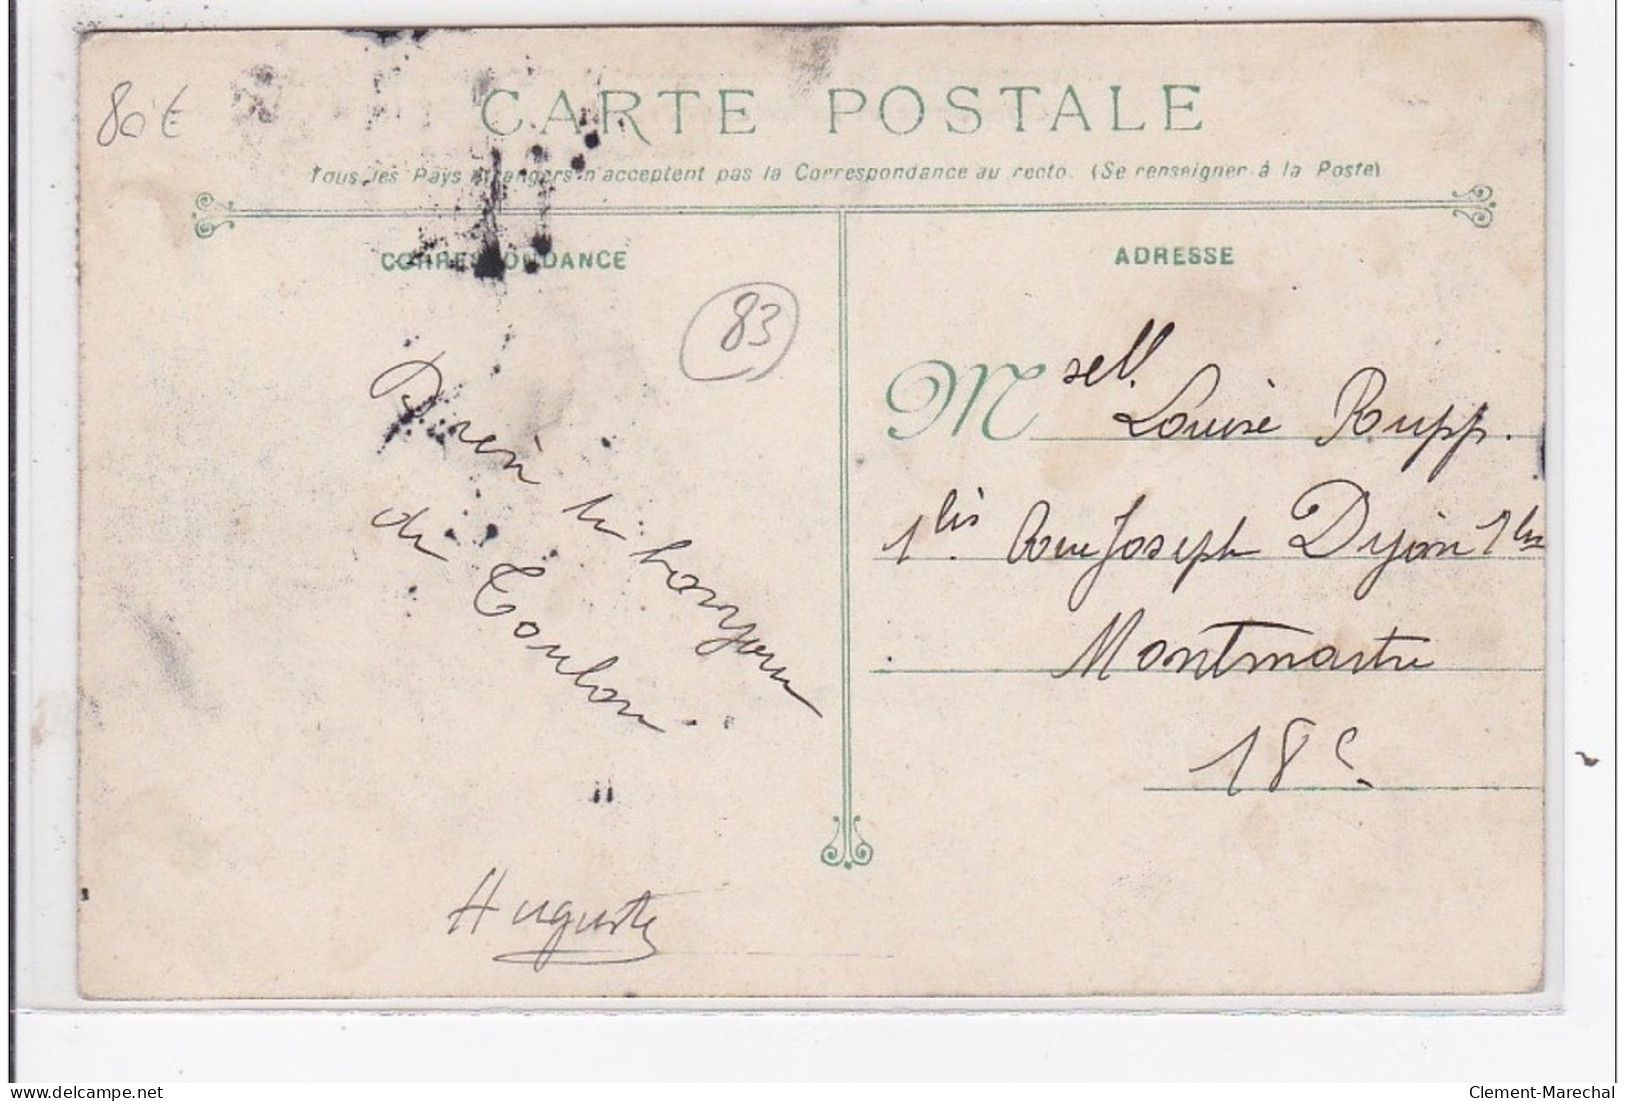 80€
CARTE POSTALE
Tous les Pays étrangers n'acceptent pas la Correspondance au recto. (Se renseigner à la Poste)
CORRESPONDANCE
ADRESSE
83
de Toulon
Auguste
Msell. Louise Rupp.
1bis. Rue Joseph Dijon 1bis
Montmartre
18e.
delcampe.net
Clement-Marechal